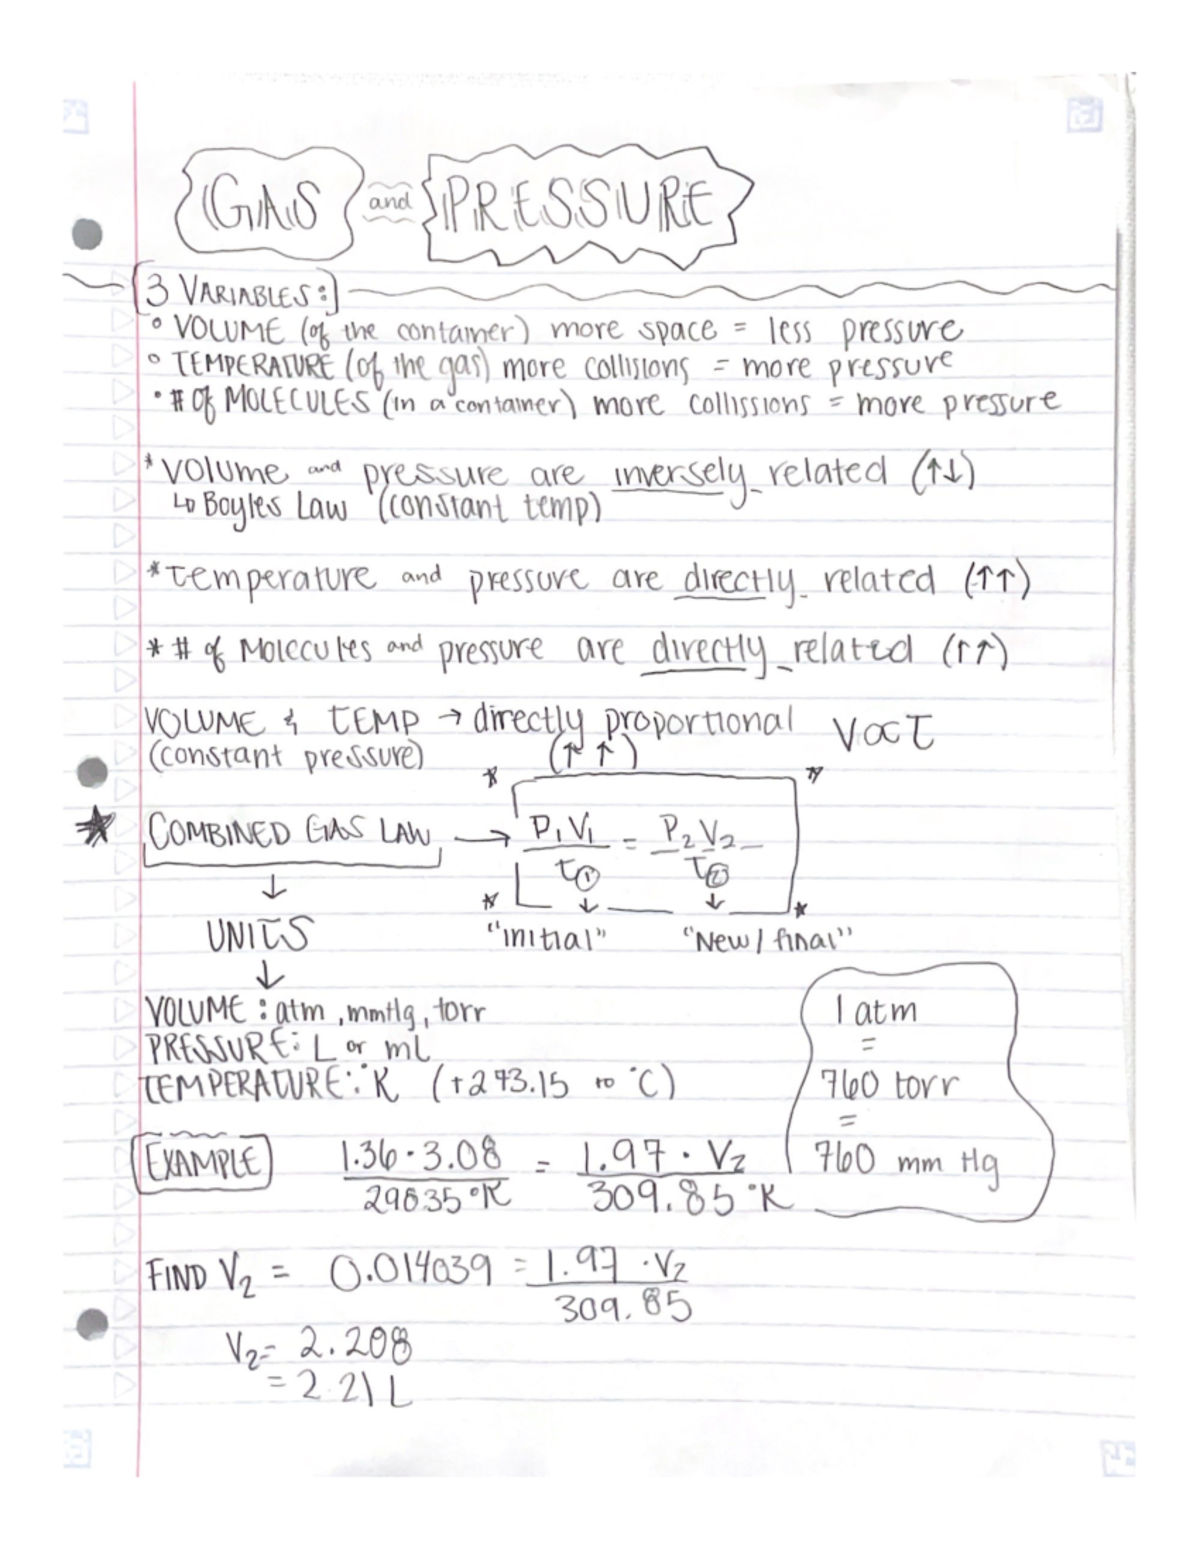 GAS and PRESSURE
3 VARIABLES:
° VOLUME (of the container) more space = less pressure
° TEMPERATURE (of the gas) more collisions = more pressure
• # of MOLECULES (in a container) more collissions = more pressure
* Volume and pressure are inversely related (↑↓)
↳ Boyles Law (constant temp)
* Temperature and pressure are directly related (↑↑)
* # of Molecules and pressure are directly related (↑↑)
VOLUME & TEMP → directly proportional V∝T
(constant pressure) (↑ ↑)
★ COMBINED GAS LAW → P₁V₁/T① = P₂V₂/T②
↓
UNITS "initial" "New / final"
↓
VOLUME : atm, mmHg, torr
PRESSURE: L or mL
TEMPERATURE: °K (+273.15 to °C)
1 atm
=
760 torr
=
760 mm Hg
EXAMPLE 1.36 · 3.08 / 298.35 °K = 1.97 · V₂ / 309.85 °K
FIND V₂ = 0.014039 = 1.97 · V₂ / 309.85
V₂ = 2.208
= 2.21 L